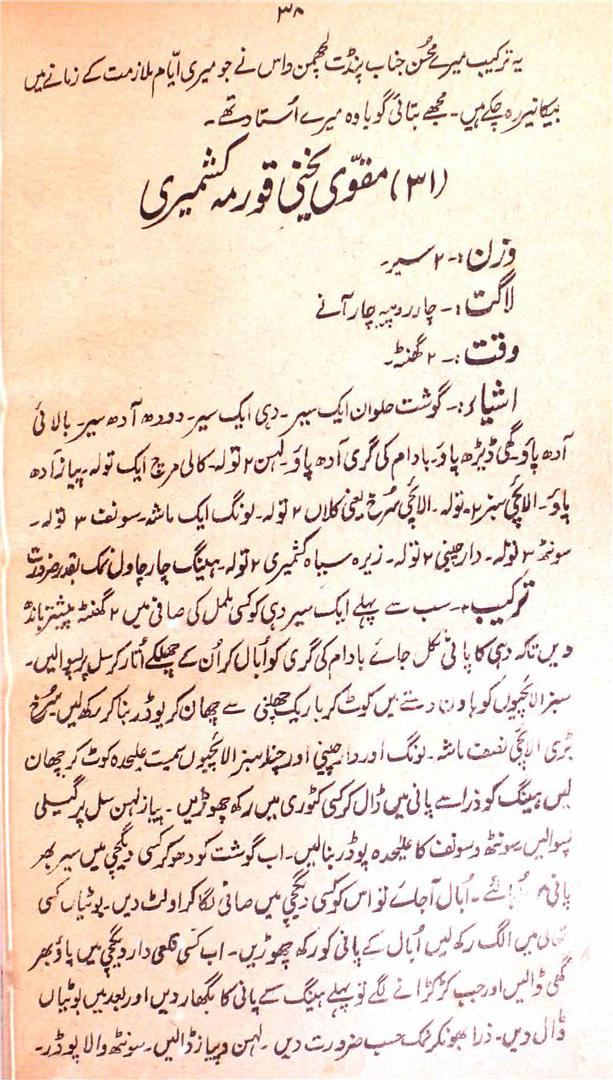 ۳۸
یہ ترکیب میرے محسن جناب پنڈت لچھمن داس نے جو میری ایّام ملازمت کے زمانے میں
بیکانیر رہ چکے ہیں۔ مجھے بتائی گویا وہ میرے اُستاد تھے۔
(۳۱) مقوّی یخنی قورمہ کشمیری
وزن:۔ ۲ سیر۔
لاگت:۔ چار روپیہ چار آنے
وقت:۔ ۲ گھنٹہ۔
اشیاء:۔ گوشت حلوان ایک سیر۔ دہی ایک سیر۔ دودھ آدھ سیر۔ بالائی
آدھ پاؤ۔ گھی ڈیڑھ پاؤ۔ بادام کی گری آدھ پاؤ۔ لہسن ۲ تولہ۔ کالی مرچ ایک تولہ۔ پیاز آدھ
پاؤ۔ الائچی سبز ۲ تولہ۔ الائچی سُرخ یعنی کلاں ۲ تولہ۔ لونگ ایک ماشہ۔ سونف ۳ تولہ۔
سونٹھ ۳ تولہ۔ دارچینی ۲ تولہ۔ زیرہ سیاہ کشمیری ۲ تولہ۔ ہینگ چار چاول نمک بقدر ضرورت
ترکیب:۔ سب سے پہلے ایک سیر دہی کو کسی ململ کی صافی میں ۲ گھنٹہ پیشتر باندھ
دیں تاکہ دہی کا پانی نکل جائے بادام کی گری کو اُبال کر اُن کے چھلکے اُتار کر سل پر پسوالیں۔
سبز الائچیوں کو ہاون دستے میں کوٹ کر باریک چھلنی سے چھان کر پوڈر بنا کر رکھ لیں سُرخ
بڑی الائچی نصف ماشہ۔ لونگ اور دارچینی اور چند سبز الائچیوں سمیت علیحدہ کوٹ کر چھان
لیں ہینگ کو ذرا سے پانی میں ڈال کر کسی کٹوری میں رکھ چھوڑیں۔ پیاز لہسن سل پر گیلی
پسوالیں سونٹھ و سونف کا علیحدہ پوڈر بنالیں۔ اب گوشت کو دھو کر کسی دیگچی میں سیر بھر
پانی میں۔ اُبال آجائے تو اس کو کسی دیگچی میں صافی لگا کر اولٹ دیں۔ بوٹیاں کسی
تھالی میں الگ رکھ لیں اُبال کے پانی کو رکھ چھوڑیں۔ اب کسی قلعی دار دیگچی میں پاؤ بھر
گھی ڈالیں اور جب کڑکڑانے لگے تو پہلے ہینگ سے پانی کا بگھار دیں اور بعد میں بوٹیاں
ڈال دیں۔ ذرا بھونکر نمک حسب ضرورت دیں۔ لہسن و پیاز ڈالیں۔ سونٹھ والا پوڈر۔